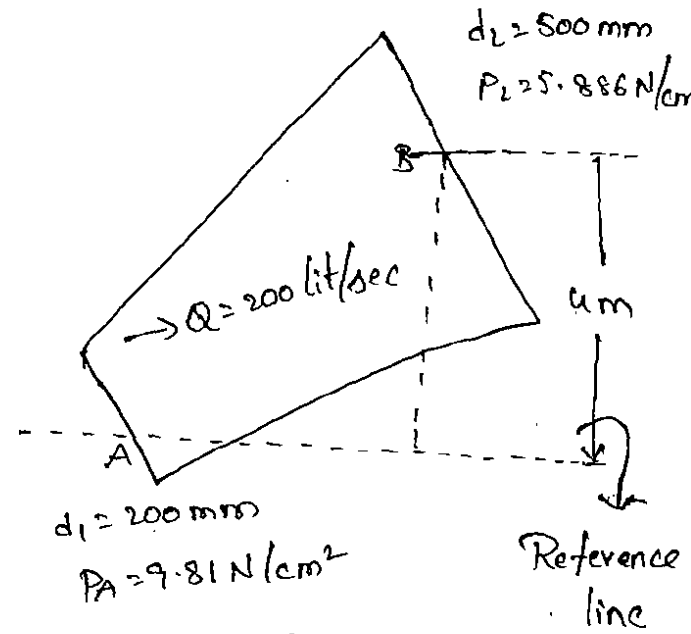 d₂ = 500 mm
P₂ = 5.886 N/cm
B
→ Q = 200 lit/sec
4m
A
d₁ = 200 mm
P_A = 9.81 N/cm²
Reference
line